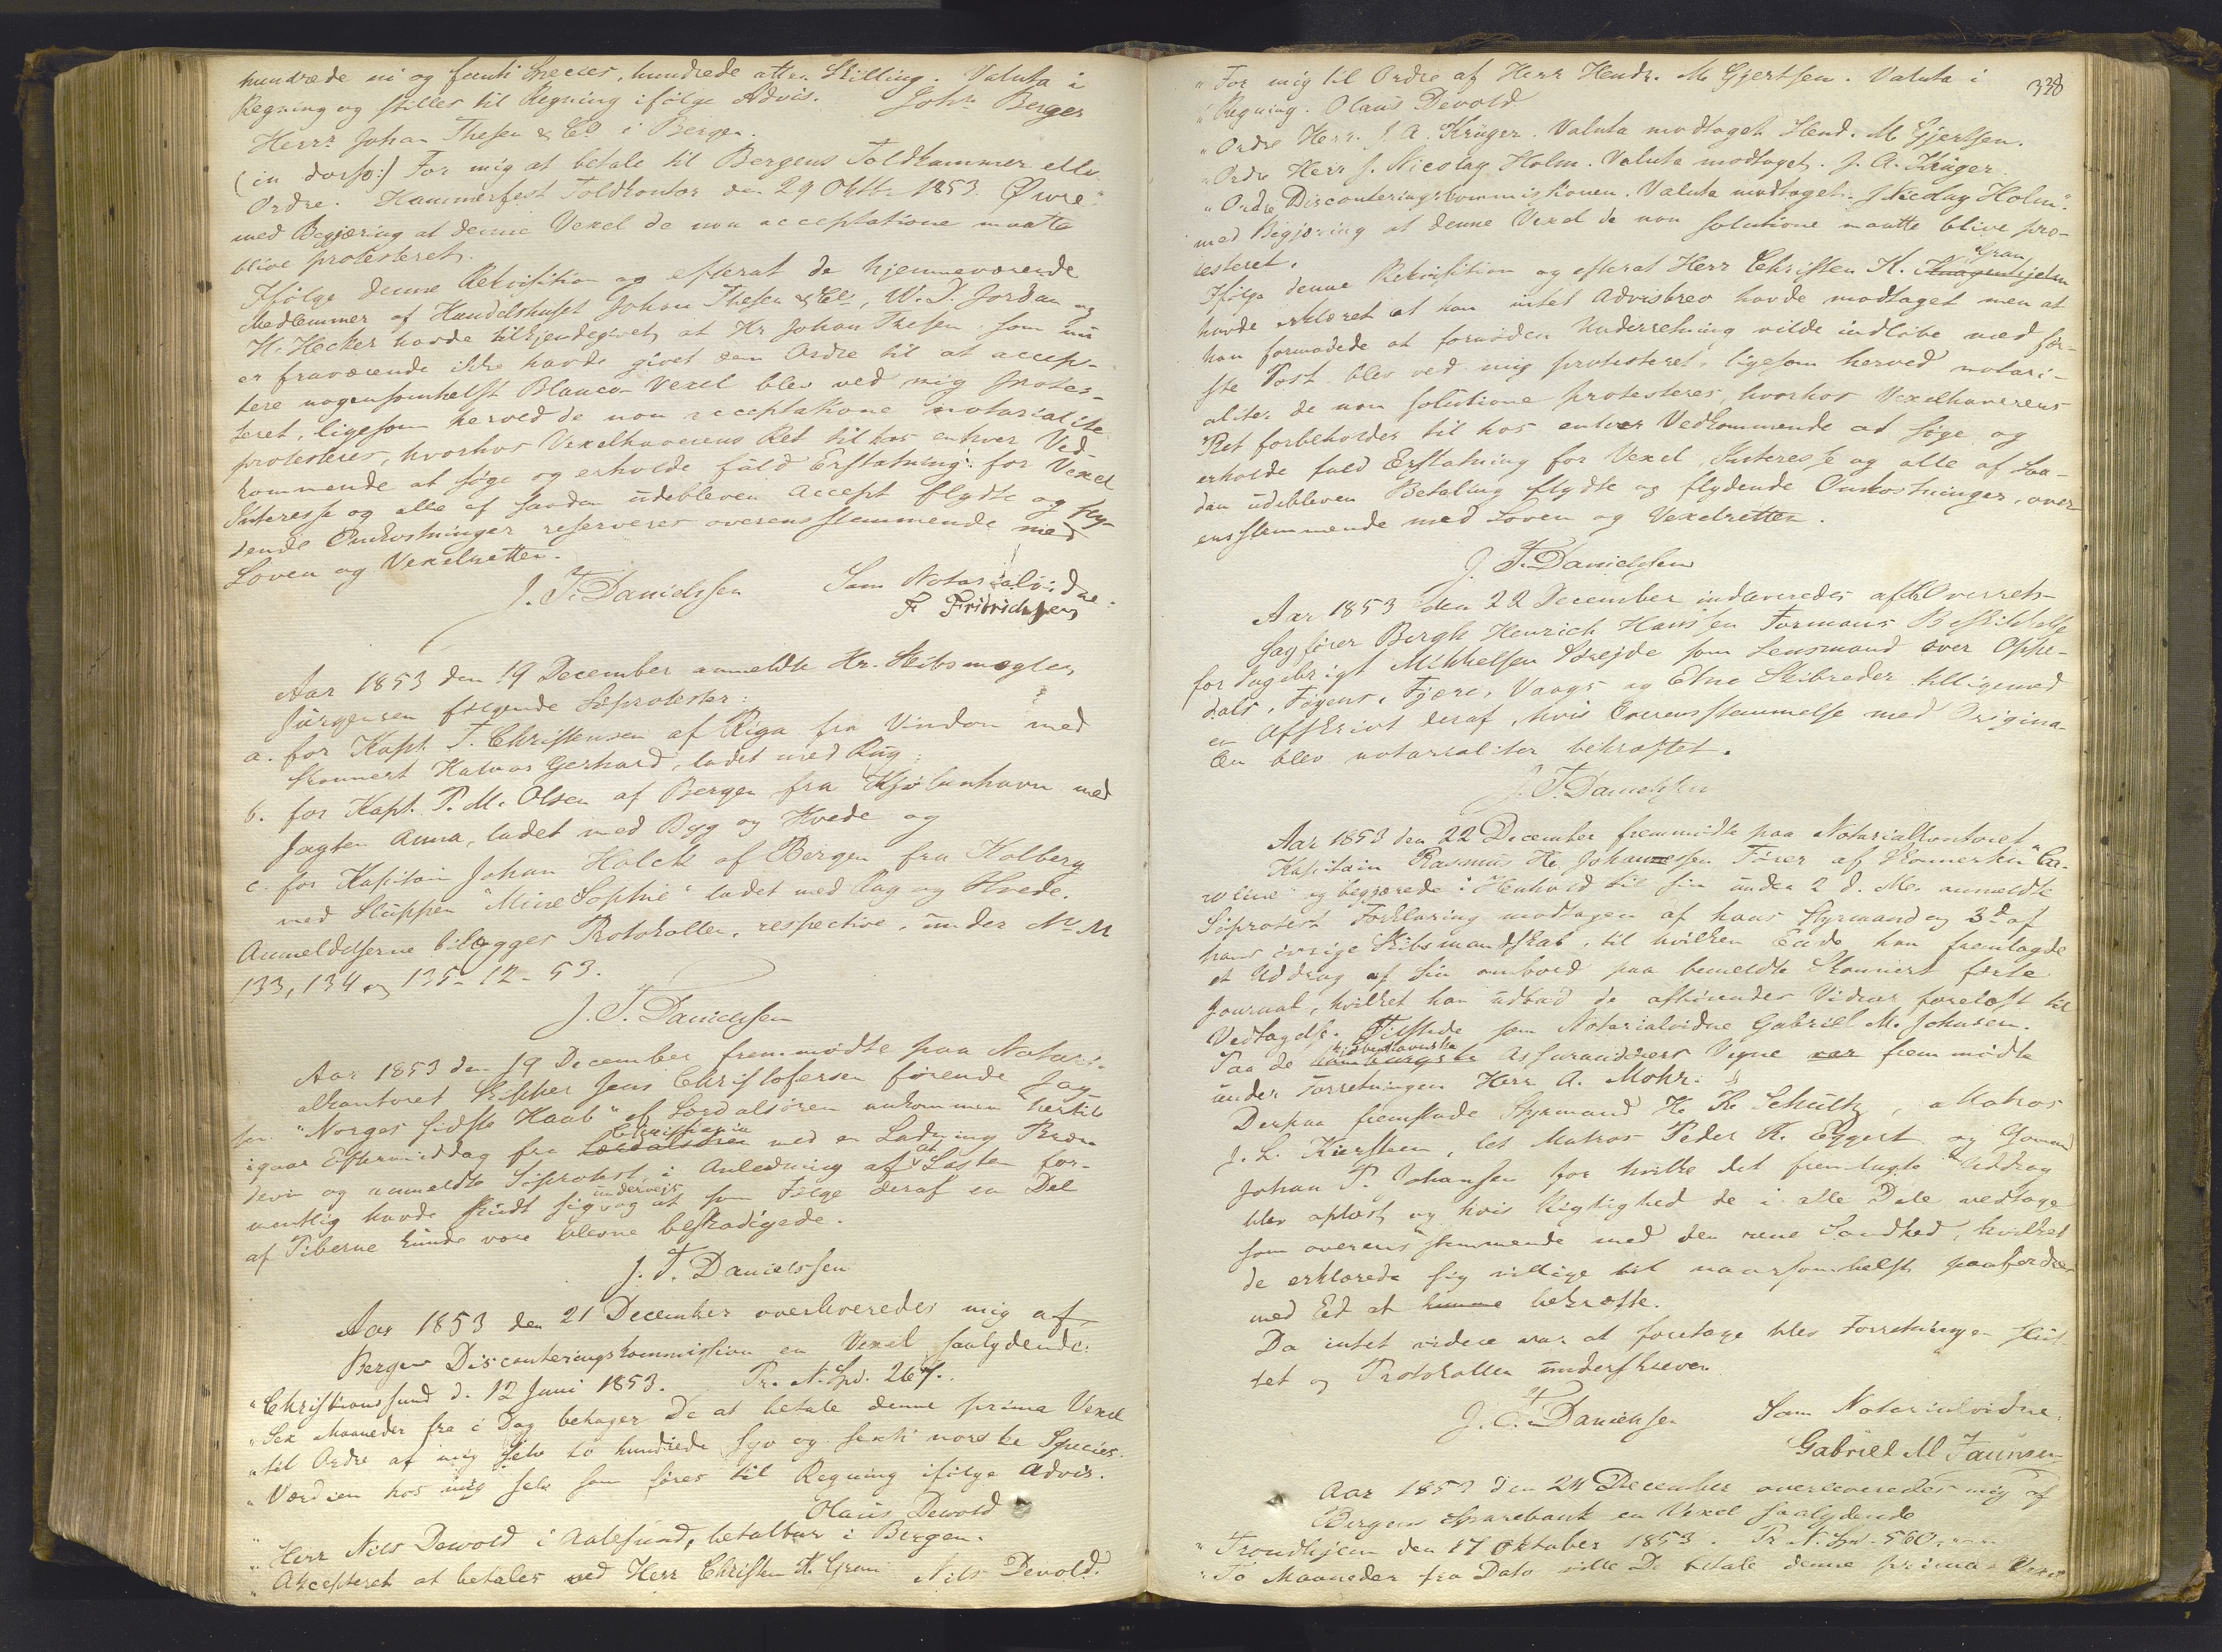 hundrede ni og femti Species, hundrede atten Skilling. Valuta i
Regning og stilles til Regning ifölge Advis. Johs Berger
Herr. Johan Thesen & Co i Bergen.
(in dorso:) For mig at betale til Bergens Toldkammer eller
Ordre. Hammerfest Toldkontor den 29 Oktbr. 1853. Øwre"
med Begjæring at denne Vexel de non acceptatione maatte
blive protesteret.
Ifölge denne Rekvisition og efterat de hjemmeværende
Medlemmer af Handelshuset Johan Thesen & Co, W. D. Jordan og
H. Hecker havde tilkjendegivet, at Hr Johan Thesen som nu
er fraværende ikke havde givet dem Ordre til at accep-
tere nogensomhelst Blanco Vexel blev ved mig protes-
teret, ligesom herved de non acceptatione notarialiter
protesteres, hvorhos Vexelhaverens Ret til hos enhver Ved-
kommende at söge og erholde fuld Erstatning for Vexel
Interesse og alle af saadan udebleven Accept flydte og fly-
dende Omkostninger reserveres overensstemmende med
Loven og Vexelretten.
J. F. Danielssen Som Notarialvidne:
F. Fridrichsen
Aar 1853 den 19 December anmeldte Hr. Skibsmægler
Jürgensen fölgende Söprotester:
a. for Kapt. T. Christensen af Riga fra Vindau med
Skonnert Halvor Gerhard, ladet med Rug;
b. for Kapt. P. M. Olsen af Bergen fra Kjöbenhavn med
Jagten Anna, ladet med Byg og Hvede og
c. for Kapitain Johan Holck af Bergen fra Kolberg
med Sluppen "Mine Sophie" ladet med Rug og Hvede.
Anmeldelserne bilægges Protokollen, respective, under Nr M
133, 134 og 135-12-53.
J. F. Danielssen
Aar 1853 den 19 December fremmödte paa Notari-
alkontoret Skipper Jens Christofersen förende Jag-
ten "Norges sidste Haab" af Lærdalsören ankommen hertil
igaar Eftermiddag fra Lærdalsören Christiania med en Ladning Brænde-
devin og anmeldte Söprotest i Anledning af at Lasten for-
mentlig havde skudt sig undervejs og at som Fölge deraf en Del
af Piberne kunde være blevne beskadigede.
J. F. Danielssen
Aar 1853 den 21 December overleveredes mig af
Bergens Disconteringskommission en Vexel saalydende:
"Christiansund d. 12 Juni 1853. Pr. N. Spd. 267.
"Sex Maaneder fra i Dag behager De at betale denne prima Vexel
"til Ordre af mig selv to hundrede syv og sexti norske Species.
"Værdien hos mig selv som föres til Regning ifölge Advis.
Olaus Dewold
"Herr Nils Dewold i Aalesund, betalbar i Bergen.
"Akcepteret at betales ved Herr Christen K. Gran Nils Devold.
338
"For mig til Ordre af Herr Hendr. M. Gjertsen. Valuta i
"Regning. Olaus Devold.
"Ordre Herr. J. A. Krüger. Valuta modtaget Hend. M. Gjertsen.
"Ordre Herr J. Nicolay Holm. Valuta modtaget. J. A. Krüger.
"Ordre Disconteringskommissionen. Valuta modtaget. J Nicolay Holm".
med Begjæring at denne Vexel de non solutione maatte blive pro-
testeret.
Ifölge denne Rekvisition og efterat Herr Christen K. Gran
havde erklæret at han intet Advisbrev havde modtaget men at
han formodede at fornöden Underretning vilde indlöbe med för-
ste Post blev ved mig protesteret, ligesom herved notari-
aliter de non solutione protesteres, hvorhos Vexelhaverens
Ret forbeholdes til hos enhver Vedkommende at söge og
erholde fuld Erstatning for Vexel, Interesse og alle af saa-
dan udebleven Betaling flydte og flydende Omkostninger, over-
ensstemmende med Loven og Vexelretten.
J. F. Danielssen
Aar 1853 den 22 December indleveredes af Hr Overrets-
Sagförer Bergh Henrich Hansen Formans Beskikkelse
for Ingebrigt Mikkelsen Skrejde som Lensmand over Oppe-
dals, Föyens, Fjære, Vaags og Etne Skibreder tilligemed
en Afskrivt deraf, hvis Overensstemmelse med Origina-
len blev notarialiter bekræftet.
J. F. Danielssen
Aar 1853 den 22 December fremmödte paa Notarialkontoret
Kapitain Rasmus H. Johannessen Förer af Skonnerten "Ca-
roline" og begjærede i Henhold til sin under 2 d. M. anmeldte
Söprotest Forklaring modtagen af hans Styrmand og 3de af
hans övrige Skibsmandskab, til hvilken Ende han fremlagde
et Uddrag af sin ombord paa bemeldte Skonnert förte
Journal, hvilket han udbad de afhörendes Vidner forelæst til
Vedtagelse. Tilstede som Notarialvidne Gabriel M. Johnsen.
Paa de kjöbenhavnske Assurandörers Vegne var fremmödte
under Forretningen Herr A. Mohr.
Derpaa fremstode Styrmand H. R. Schultz, Matros
J. L. Kiersteen, let Matros Peder R. Eggert og Jomand
Johan P. Johansen for hvilke det fremlagte Uddrag
blev oplæst og hvis Rigtighed de i alle Dele vedtoge
som overensstemmende med den rene Sandhed, hvilket
de erklærede sig villige til naarsomhelst paafordres
med Ed at kunne bekræfte.
Da intet videre var at foretage blev Forretningen slut-
tet og Protokollen underskreven.
J. F. Danielssen Som Notarialvidne:
Gabriel M Jaünsen
Aar 1853 den 24 December overleveredes mig af
Bergens Sparebank en Vexel saalydende
"Trondhjem den 17 Oktober 1853. Pr. N. Spd. 560.
"To Maaneder fra Dato ville De betale denne prima Vexel